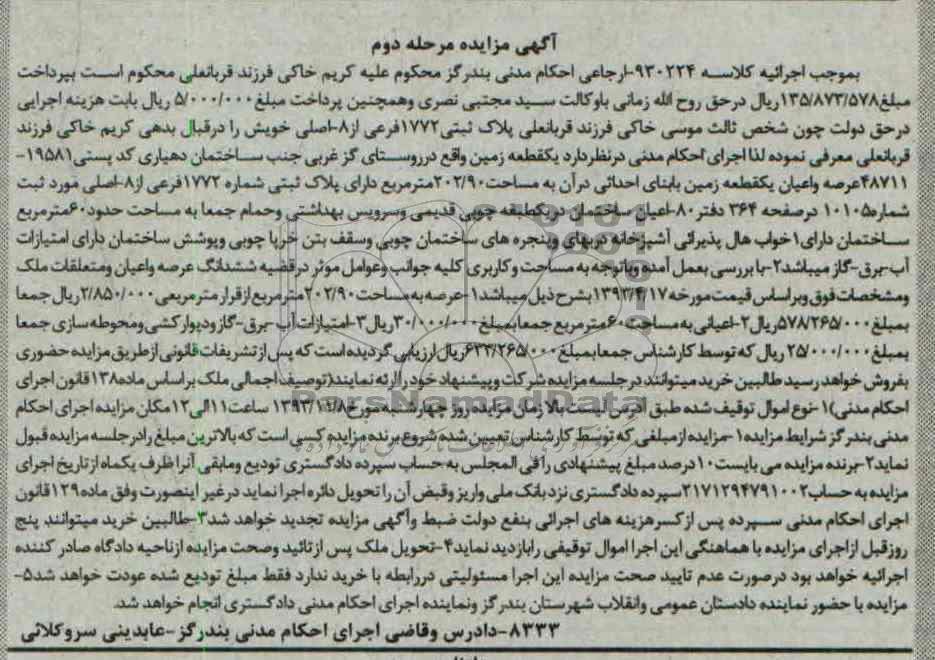 آگهی مزایده مرحله دوم
بموجب اجرائیه کلاسه ۹۳۰۲۲۴-ارجاعی احکام مدنی بندرگز محکوم علیه کریم خاکی فرزند قربانعلی محکوم است بپرداخت
مبلغ۱۳۵/۸۷۳/۵۷۸ریال درحق روح الله زمانی باوکالت سید مجتبی نصری وهمچنین پرداخت مبلغ۵/۰۰۰/۰۰۰ ریال بابت هزینه اجرایی
درحق دولت چون شخص ثالث موسی خاکی فرزند قربانعلی پلاک ثبتی۱۷۷۲فرعی از۸-اصلی خویش را درقبال بدهی کریم خاکی فرزند
قربانعلی معرفی نموده لذا اجرای احکام مدنی درنظردارد یکقطعه زمین واقع درروستای گز غربی جنب ساختمان دهیاری کد پستی۱۹۵۸۱-
۴۸۷۱۱عرصه واعیان یکقطعه زمین بابنای احداثی درآن به مساحت۲۰۲/۹۰مترمربع دارای پلاک ثبتی شماره ۱۷۷۲فرعی از۸-اصلی مورد ثبت
شماره۱۰۱۰۵ درصفحه ۳۶۴ دفتر۸۰-اعیان ساختمان دریکطبقه چوبی قدیمی وسرویس بهداشتی وحمام جمعا به مساحت حدود۶۰مترمربع
ساختمان دارای۱خواب هال پذیرائی آشپزخانه دربهای وپنجره های ساختمان چوبی وسقف بتن خرپا چوبی وپوشش ساختمان دارای امتیازات
آب-برق-گاز میباشد۲-با بررسی بعمل آمده وباتوجه به مساحت وکاربری کلیه جوانب وعوامل موثر درقضیه ششدانگ عرصه واعیان ومتعلقات ملک
ومشخصات فوق وبراساس قیمت مورخه ۱۳۹۳/۴/۱۷بشرح ذیل میباشد۱-عرصه به مساحت ۲۰۲/۹۰مترمربع ازقرار مترمربعی۲/۸۵۰/۰۰۰ریال جمعا
بمبلغ۵۷۸/۲۶۵/۰۰۰ریال۲-اعیانی به مساحت۶۰مترمربع جمعا بمبلغ۳۰/۰۰۰/۰۰۰ریال۳-امتیازات آب-برق-گازودیوارکشی ومحوطه سازی جمعا
بمبلغ۲۵/۰۰۰/۰۰۰ ریال که توسط کارشناس جمعا بمبلغ۶۳۳/۲۶۵/۰۰۰ریال ارزیابی گردیده است که پس ازتشریفات قانونی ازطریق مزایده حضوری
بفروش خواهد رسید طالبین خرید میتوانند درجلسه مزایده شرکت وپیشنهاد خود را ارئه نمایند(توصیف اجمالی ملک براساس ماده۱۳۸قانون اجرای
احکام مدنی)۱-نوع اموال توقیف شده طبق آدرس لیست بالا زمان مزایده روز چهارشنبه مورخ۱۳۹۳/۱۱/۸ ساعت۱۱الی۱۲مکان مزایده اجرای احکام
مدنی بندرگز شرایط مزایده۱-مزایده ازمبلغی که توسط کارشناس تعیین شده شروع برنده مزایده کسی است که بالاترین مبلغ رادرجلسه مزایده قبول
نماید۲-برنده مزایده می بایست۱۰درصد مبلغ پیشنهادی رافی المجلس به حساب سپرده دادگستری تودیع ومابقی آنرا ظرف یکماه ازتاریخ اجرای
مزایده به حساب۲۱۷۱۲۹۴۷۹۱۰۰۲سپرده دادگستری نزد بانک ملی واریز وقبض آن را تحویل دائره اجرا نماید درغیر اینصورت وفق ماده۱۲۹قانون
اجرای احکام مدنی سپرده پس ازکسرهزینه های اجرائی بنفع دولت ضبط وآگهی مزایده تجدید خواهد شد۳-طالبین خرید میتوانند پنج
روزقبل ازاجرای مزایده با هماهنگی این اجرا اموال توقیفی رابازدید نماید۴-تحویل ملک پس ازتائید وصحت مزایده ازناحیه دادگاه صادر کننده
اجرائیه خواهد بود درصورت عدم تایید صحت مزایده این اجرا مسئولیتی دررابطه با خرید ندارد فقط مبلغ تودیع شده عودت خواهد شد۵-
مزایده با حضور نماینده دادستان عمومی وانقلاب شهرستان بندرگز ونماینده اجرای احکام مدنی دادگستری انجام خواهد شد.
۸۳۳۳-دادرس وقاضی اجرای احکام مدنی بندرگز-عابدینی سروکلائی
ParsNamadData